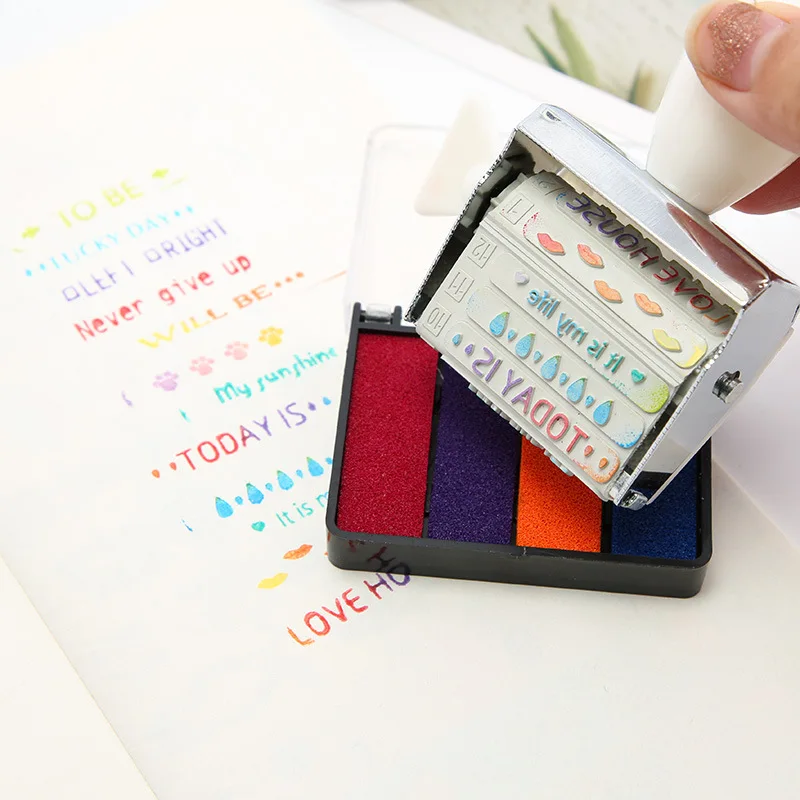 TO BE
LUCKY DAY
LEFT RIGHT
Never give up
WILL BE...
My sunshine
TODAY IS
It is m
LOVE HO
LOVE HOUSE
1
12
It is my life
11
10
TODAY IS